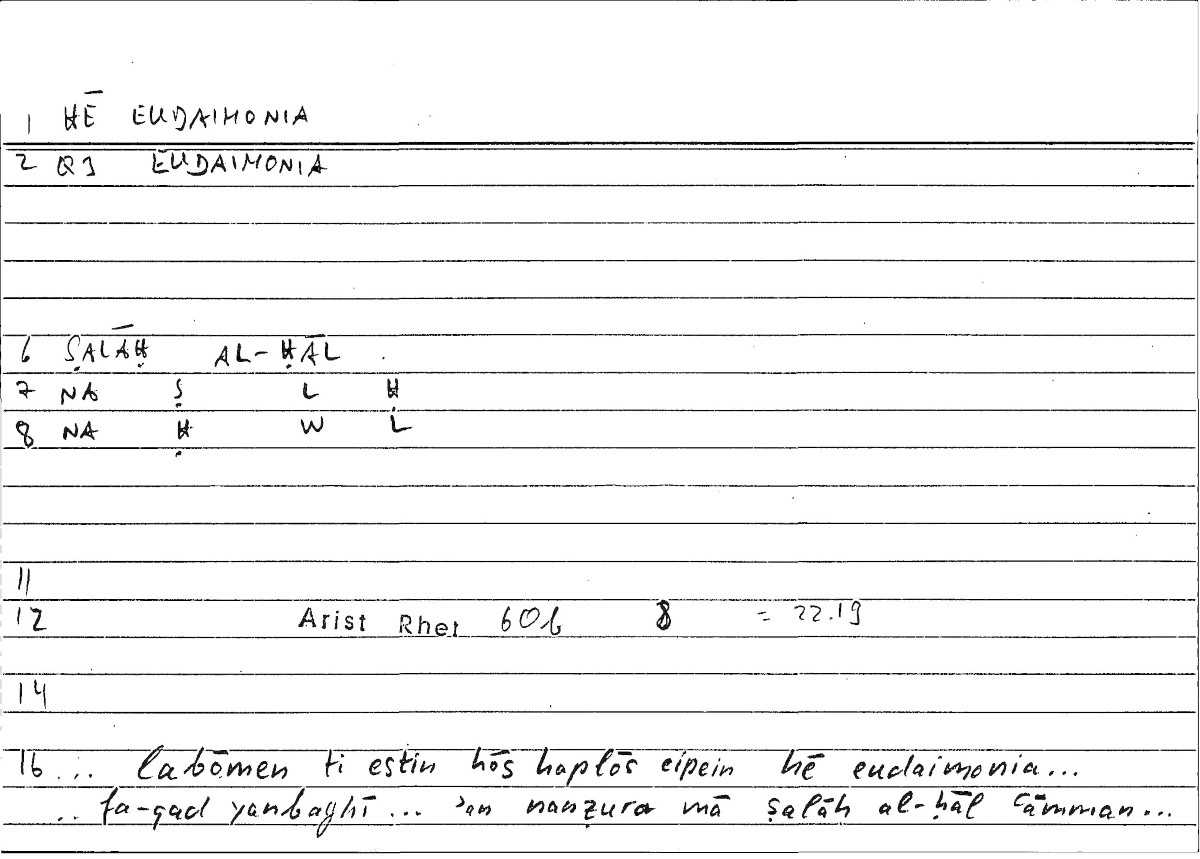 1 HĒ EUDAIMONIA
2 Q3 EUDAIMONIA
6 ṢALĀḤ AL-ḤĀL
7 NA Ṣ L Ḥ
8 NA Ḥ W L
11
12 Arist Rhet 60b 8 = 22.19
14
16 ... labōmen ti estin hōs haplōs eipein hē eudaimonia...
.. fa-qad yanbaghī... ʾan nanẓura mā ṣalāḥ al-ḥāl ʿāmman...